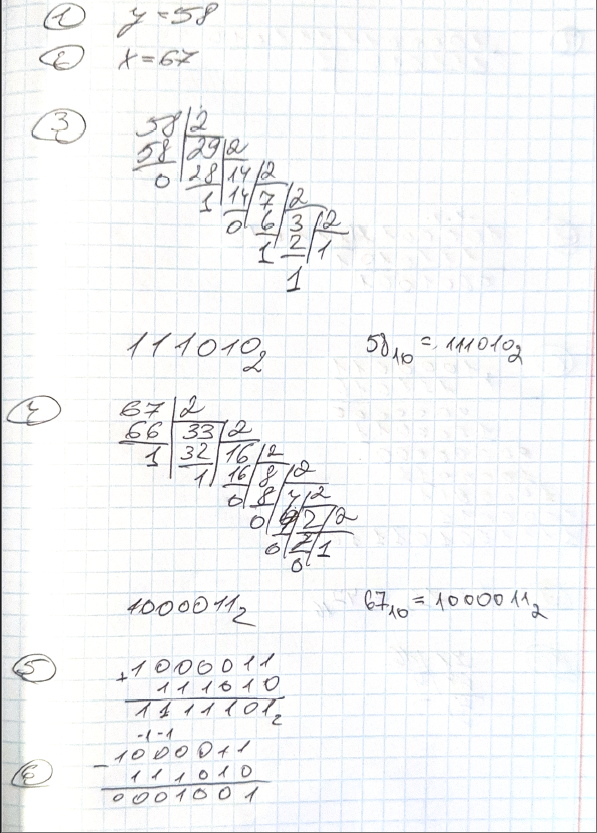 1 y=58
2 x=67
3 58 | 2
58 | 29 | 2
0 | 28 | 14 | 2
1 | 14 | 7 | 2
0 | 6 | 3 | 2
1 | 2 | 1
1
111010₂ 58₁₀ = 111010₂
4 67 | 2
66 | 33 | 2
1 | 32 | 16 | 2
1 | 16 | 8 | 2
0 | 8 | 4 | 2
0 | 2 | 2
0 | 2 | 1
0
1000011₂ 67₁₀ = 1000011₂
5 + 1000011
111010
1111101₂
-1 -1
- 1000011
6 111010
0001001